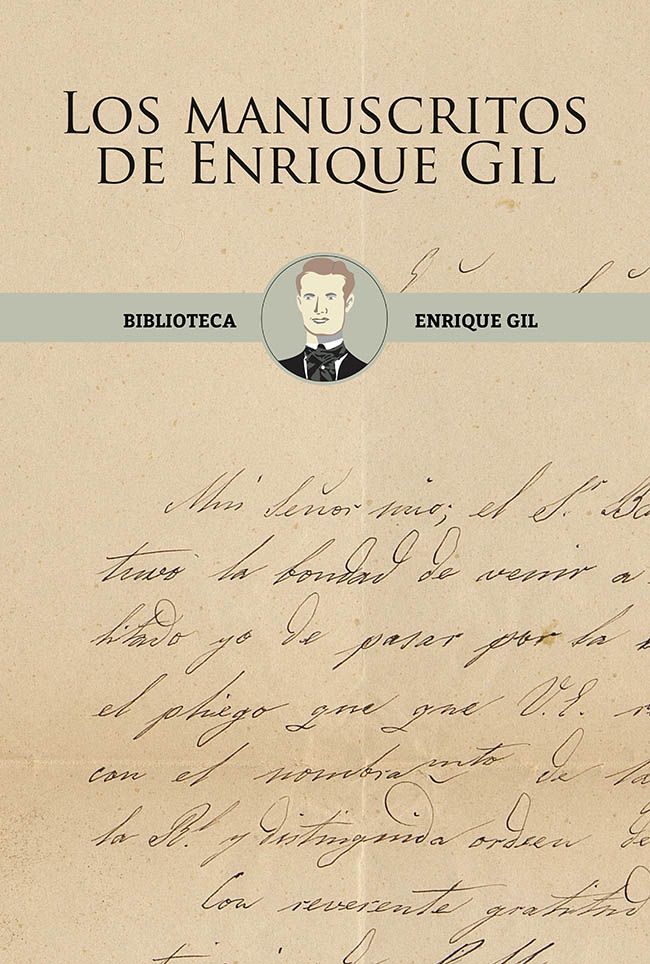 LOS MANUSCRITOS
DE ENRIQUE GIL
BIBLIOTECA
ENRIQUE GIL
Mui Señor mio; el Sr. Ba
tuvo la bondad de venir a
litado yo de pasar por la
el pliego que que V.E. r
con el nombramto de la
la Rl. y distinguida orden de
Con reverente gratitud